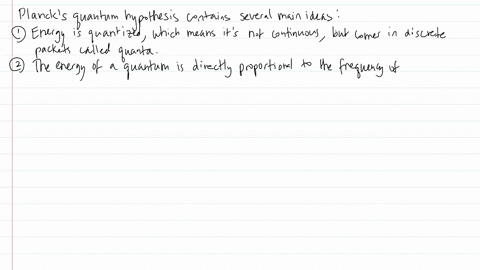 Planck's quantum hypothesis contains several main ideas:
① Energy is quantized, which means it's not continuous, but comes in discrete
packets called quanta.
② The energy of a quantum is directly proportional to the frequency of